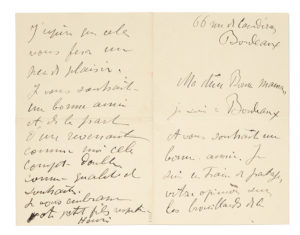 66 rue de
Bordeaux
Ma chère Bonne maman
je suis à Bordeaux
et vous souhaite un
bonne année. Je
suis en train de
votre opinion sur
les brouillards de la
J'espère que cela
vous fera un
peu de plaisir.
Je vous souhaite
une bonne année
et de la part
d'un revenant
comme moi cela
compte double
comme qualité et
souhaits.
Je vous embrasse
votre petit fils
Henri